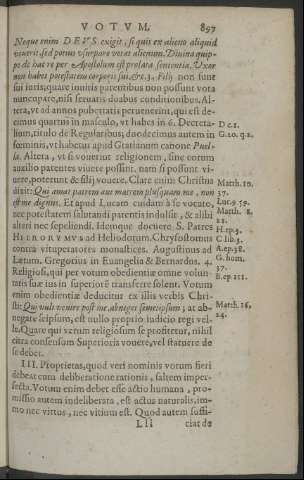 VOTVM. 897
Neque enim DEVS exigit, si quis ex alieno aliquid
voverit, sed potius usurpare vetat alienum. Divina quip-
pe de hac re per Apostolum est prolata sententia. Uxor
non habet potestatem corporis sui, &c. 3. Filij non sunt
sui iuris; quare invitis parentibus non possunt vota
nuncupare, nisi seruatis duabus conditionibus. Al-
tera, vt ad annos pubertatis peruenerint, qui est de-
cimus quartus in masculo, vt habes in 6. Decreta-
lium, titulo de Regularibus; duodecimus autem in
fœminis, vt habetur apud Gratianum canone Puel-
la. Altera, vt si voueriut religionem, sine eorum
auxilio parentes viuere possint. nam si possunt vi-
uere, poterunt & filij vouere. Clare enim Christus
dixit: Qui amat patrem aut matrem plusquam me, non
est me dignus. Et apud Lucam cuidam à se vocato,
nec potestatem salutandi parentis indulsit, & alibi
alteri nec sepeliendi. Idemque docuere S. Patres
HIERONYMVS ad Heliodorum. Chrysostomus
contra vituperatores monasticæ. Augustinus ad
Lætum. Gregorius in Euangelia & Bernardus. 4.
Religiosi, qui per votum obedientiæ omne volun-
tatis suæ ius in superiorē transferre solent. Votum
enim obedientiæ deducitur ex illis verbis Chri-
sti: Qui vult venire post me, abneget semetipsum; at ab-
negare seipsum, est nullo proprio iudicio regi vel-
le. Quare qui verum religiosum se profitetur, nihil
citra consensum Superioris vouere, vel statuere de
se debet.
III. Proprietas, quod veri nominis votum fieri
debeat cum deliberatione rationis, saltem imper-
fecta. Votum enim debet esse actio humana, pro-
missio autem indeliberata, est actus naturalis, im-
mo nec virtus, nec vitium est. Quod autem suffi-
Lll ciat de
D c 1.
G. 20. q. 2.
Matth. 10.
37.
Luc. 9. 59.
Matth. 8.
21.
H. ep. 5.
C. lib. 3.
A. ep. 38.
G. hom.
37.
B. ep. 111.
Match. 16.
24.